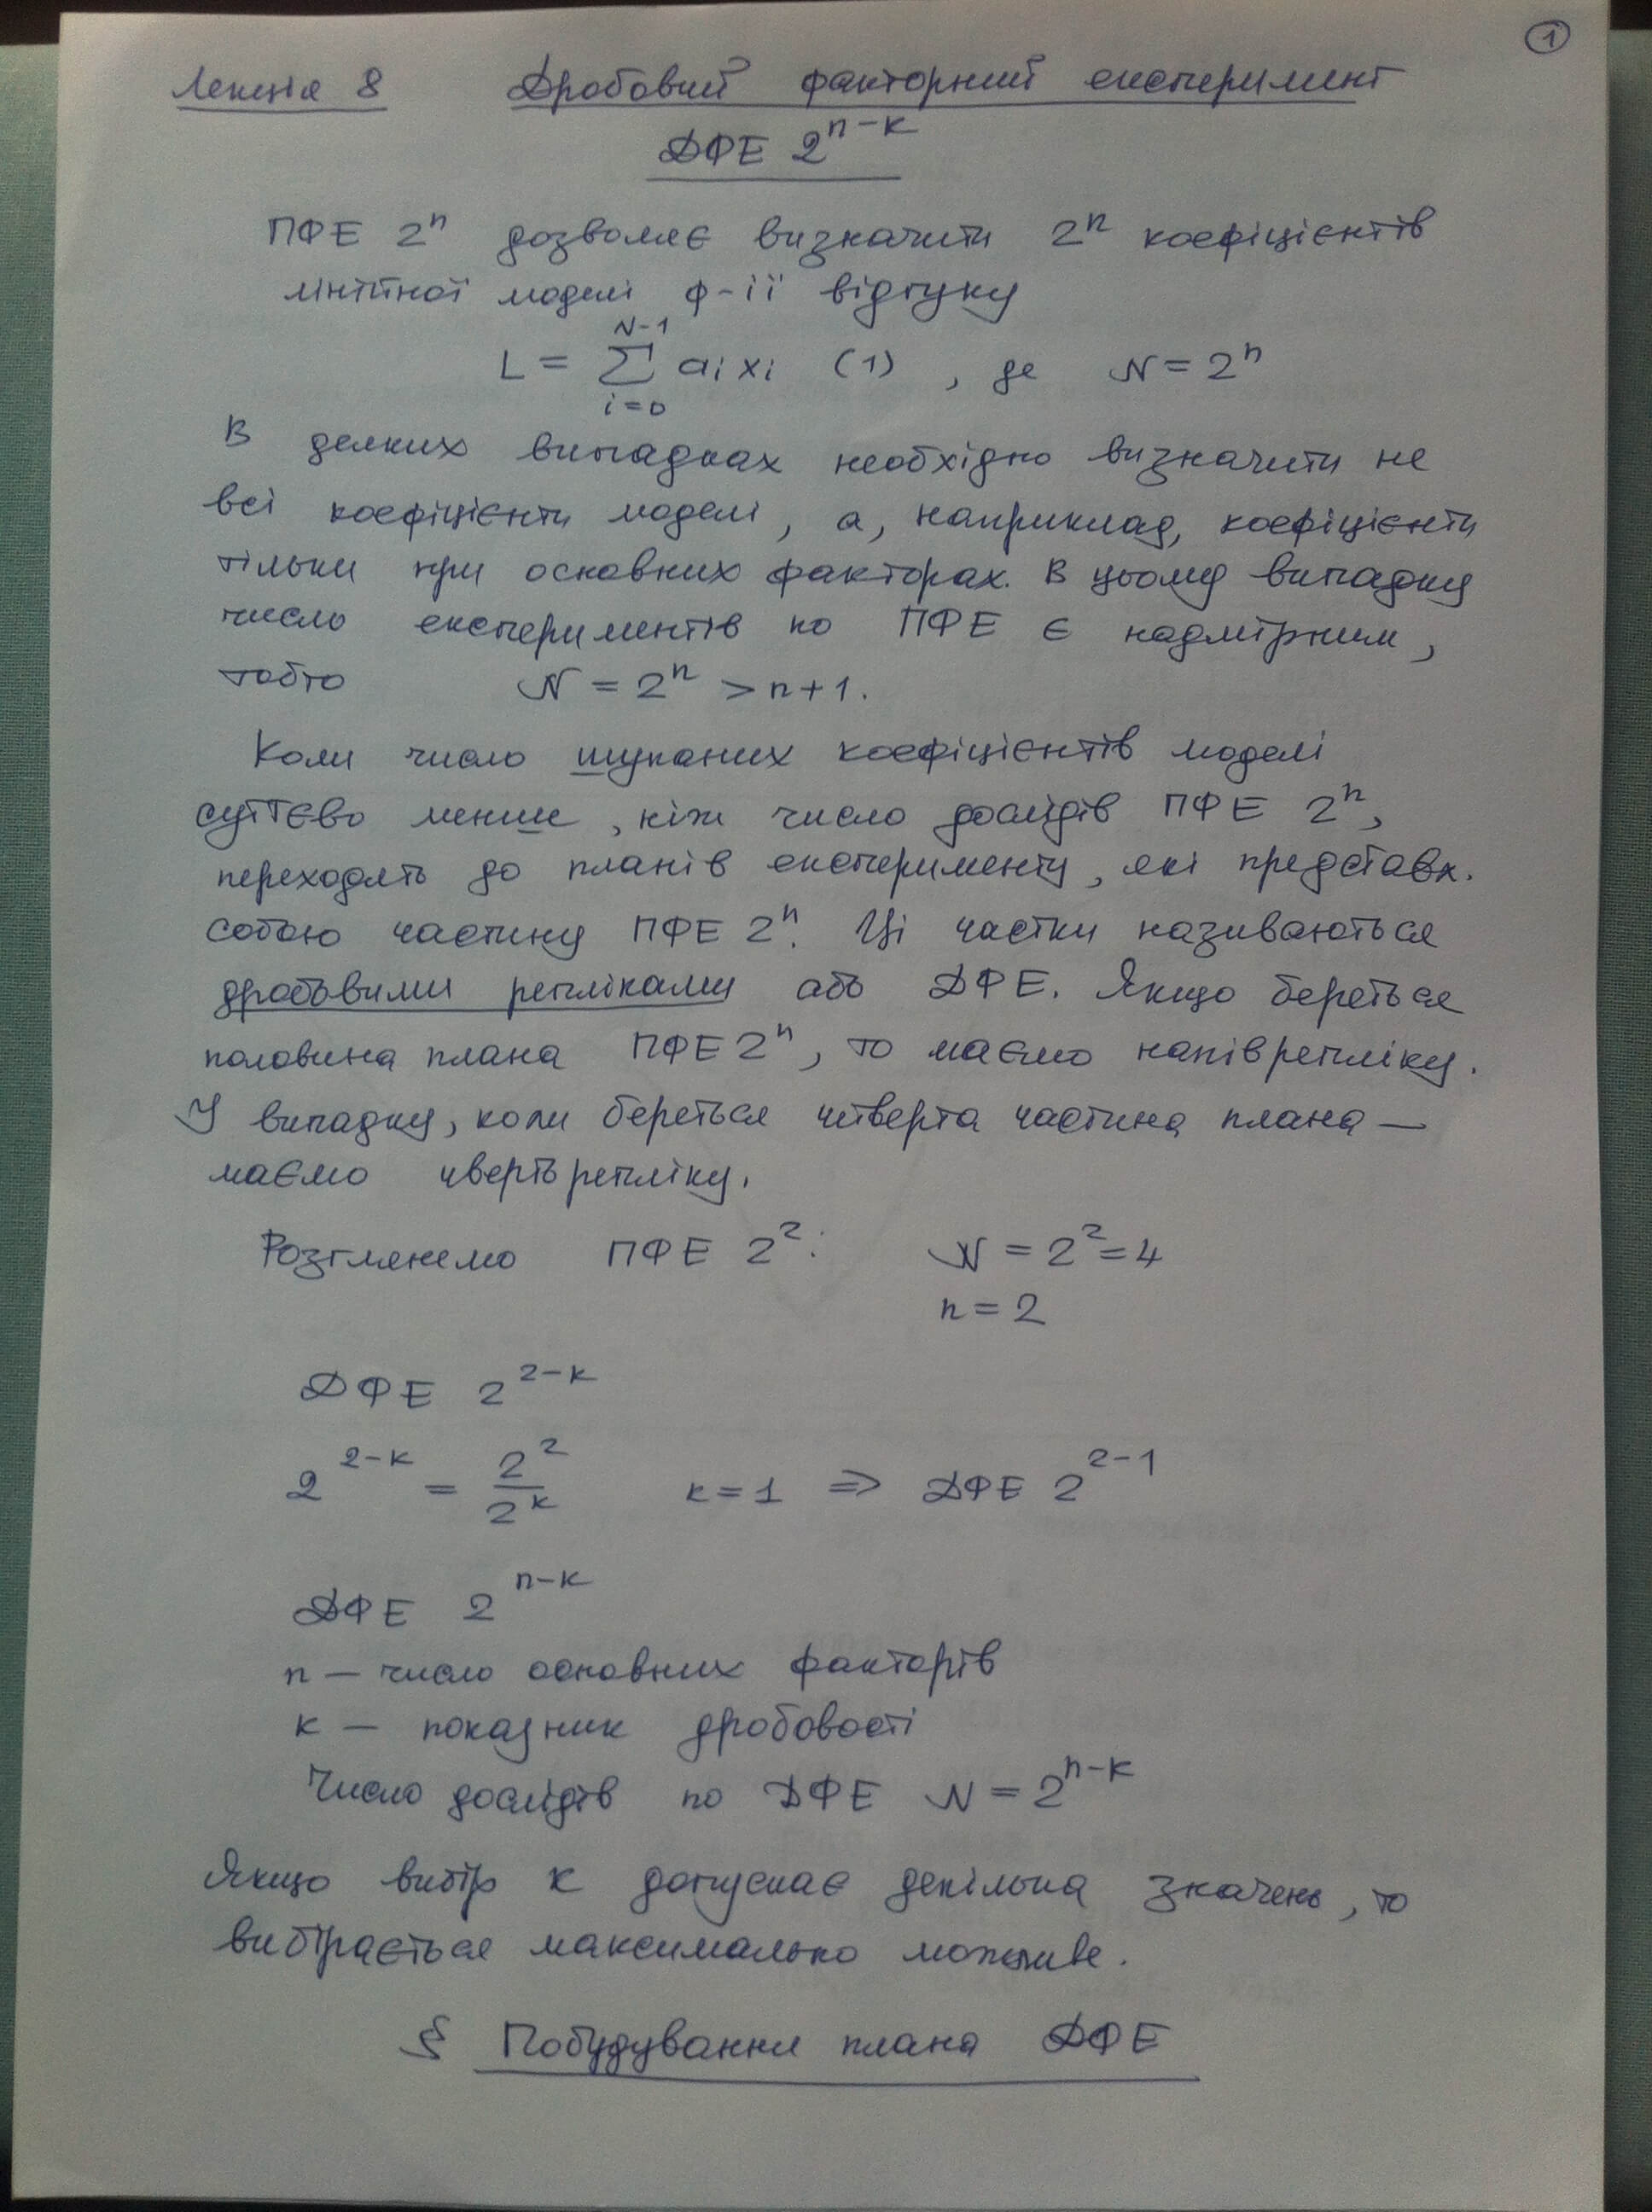 1
Лекція 8 Дробовий факторний експеримент
ДФЕ 2^{n-k}
ПФЕ 2^n дозволяє визначити 2^n коефіцієнтів
лінійної моделі ф-ії відгуку
L = \sum_{i=0}^{N-1} a_i x_i (1) , де N = 2^n
В деяких випадках необхідно визначити не
всі коефіцієнти моделі, а, наприклад, коефіцієнти
тільки при основних факторах. В цьому випадку
число експериментів по ПФЕ є надмірним,
тобто N = 2^n > n+1.
Коли число шуканих коефіцієнтів моделі
суттєво менше, ніж число дослідів ПФЕ 2^n,
переходять до планів експерименту, які представл.
собою частину ПФЕ 2^n. Ці частки називаються
дробовими репліками або ДФЕ. Якщо береться
половина плана ПФЕ 2^n, то маємо напіврепліку.
У випадку, коли береться четверта частина плана —
маємо чвертьрепліку.
Розглянемо ПФЕ 2^2: N = 2^2 = 4
n = 2
ДФЕ 2^{2-k}
2^{2-k} = \frac{2^2}{2^k} k = 1 ⇒ ДФЕ 2^{2-1}
ДФЕ 2^{n-k}
n — число основних факторів
k — показник дробовості
Число дослідів по ДФЕ N = 2^{n-k}
Якщо вибір k допускає декілька значень, то
вибірається максимально можливе.
§ Побудування плана ДФЕ